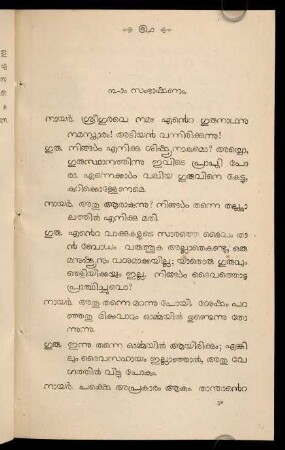 ൩൦
൩ാം സംഭാഷണം.
നായർ. ശ്രീഗുരവെ നമഃ എന്റെ ഗുരുനാഥനു
നമസ്കാരം! അടിയൻ വന്നിരിക്കുന്നു!
ഗുരു. നിങ്ങൾ എനിക്കു ശിഷ്യനാകുമൊ? അതല്ലൊ,
ഗുരുസ്ഥാനത്തിന്നു ഇവിടെ പ്രാപ്തി പോ
രാ. എന്നേക്കാൾ വലിയ ഗുരുവിനെ കേട്ടു
കുറിക്കൊള്ളേണമെ.
നായർ. അതു ആരാകുന്നു? നിങ്ങൾ തന്നെ തല്ക്കാ
ലത്തിൽ എനിക്കു മതി.
ഗുരു. എന്റെ വാക്കുകളുടെ സാരത്തെ ദൈവം താ
ൻ ബോധം വരുത്തുക അല്ലാതെകണ്ടു, ഒരു
മനുഷ്യനും വശമാക്കയില്ല; യാതൊരു ഗുരുവും
തെളിയിക്കയും ഇല്ല. നിങ്ങൾ ദൈവത്തൊടു
പ്രാർത്ഥിച്ചുവൊ?
നായർ. അതു തന്നെ മറന്നു പോയി. ശേഷം പറ
ഞ്ഞതു മിക്കവാറും ഓൎമ്മയിൽ ഉണ്ടെന്നു തോ
ന്നുന്നു.
ഗുരു. ഇന്നു തന്നെ ഓൎമ്മയിൽ ആയിരിക്കും; എങ്കി
ലും ദൈവസഹായം ഇല്ലാഞ്ഞാൽ, അതു വേ
ഗത്തിൽ വിട്ടു പോകും.
നായർ. പക്ഷെ അപ്രകാരം ആകും. താന്താന്റെ